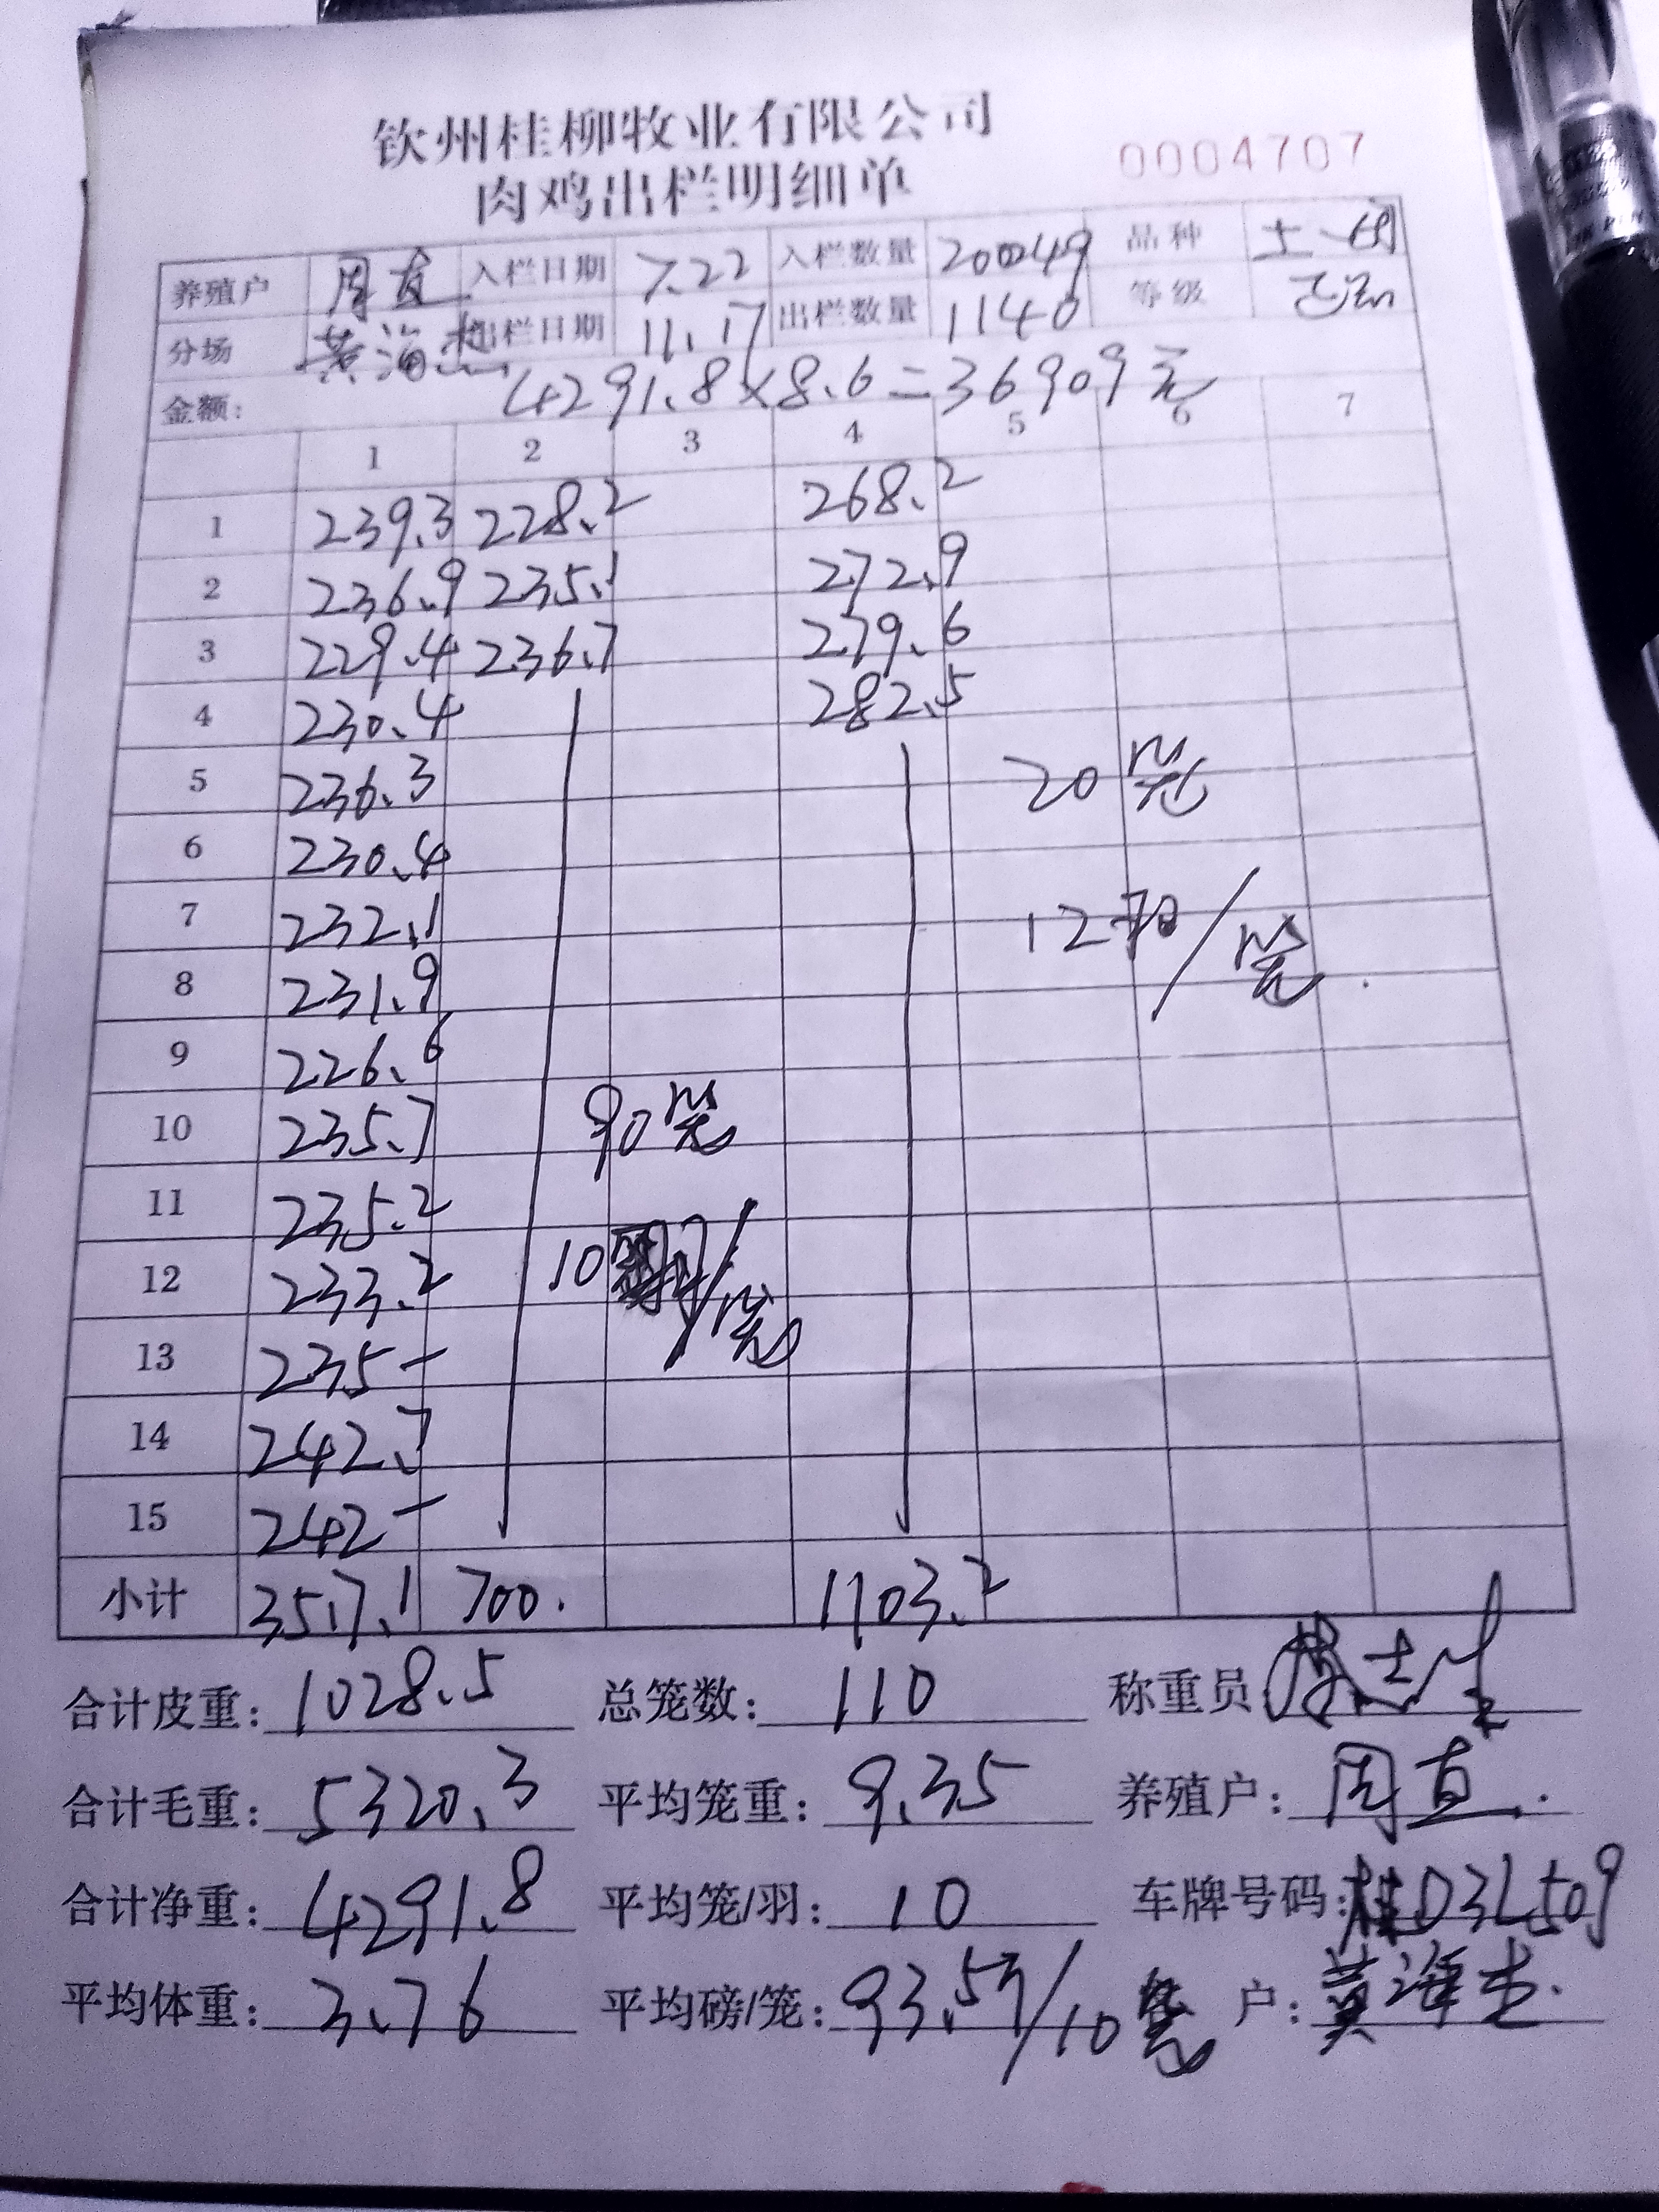 钦州桂柳牧业有限公司
肉鸡出栏明细单
0004707
养殖户 周直 入栏日期 7.22 入栏数量 品种 土
分场 黄海 出栏日期 11.17 出栏数量 1140 等级
金额: 4291.8×8.6=36909元
1 2 3 4 5 6 7
1 239.3 228.2 268.2
2 236.9 235.1 272.9
3 229.4 236.7 279.6
4 230.4 282.5
5 236.3 20笼
6 230.4
7 232.1 12羽/笼
8 231.9
9 226.6
10 235.7 90笼
11 235.2
12 233.2 10 /笼
13 235-
14 242.7
15 242-
小计 3517.1 700. 1103.2
合计皮重: 1028.5 总笼数: 110 称重员
合计毛重: 5320.3 平均笼重: 9.35 养殖户: 周直
合计净重: 4291.8 平均笼/羽: 10 车牌号码: 桂D3L509
平均体重: 3.76 平均磅/笼: 93.57/10 户: 黄海